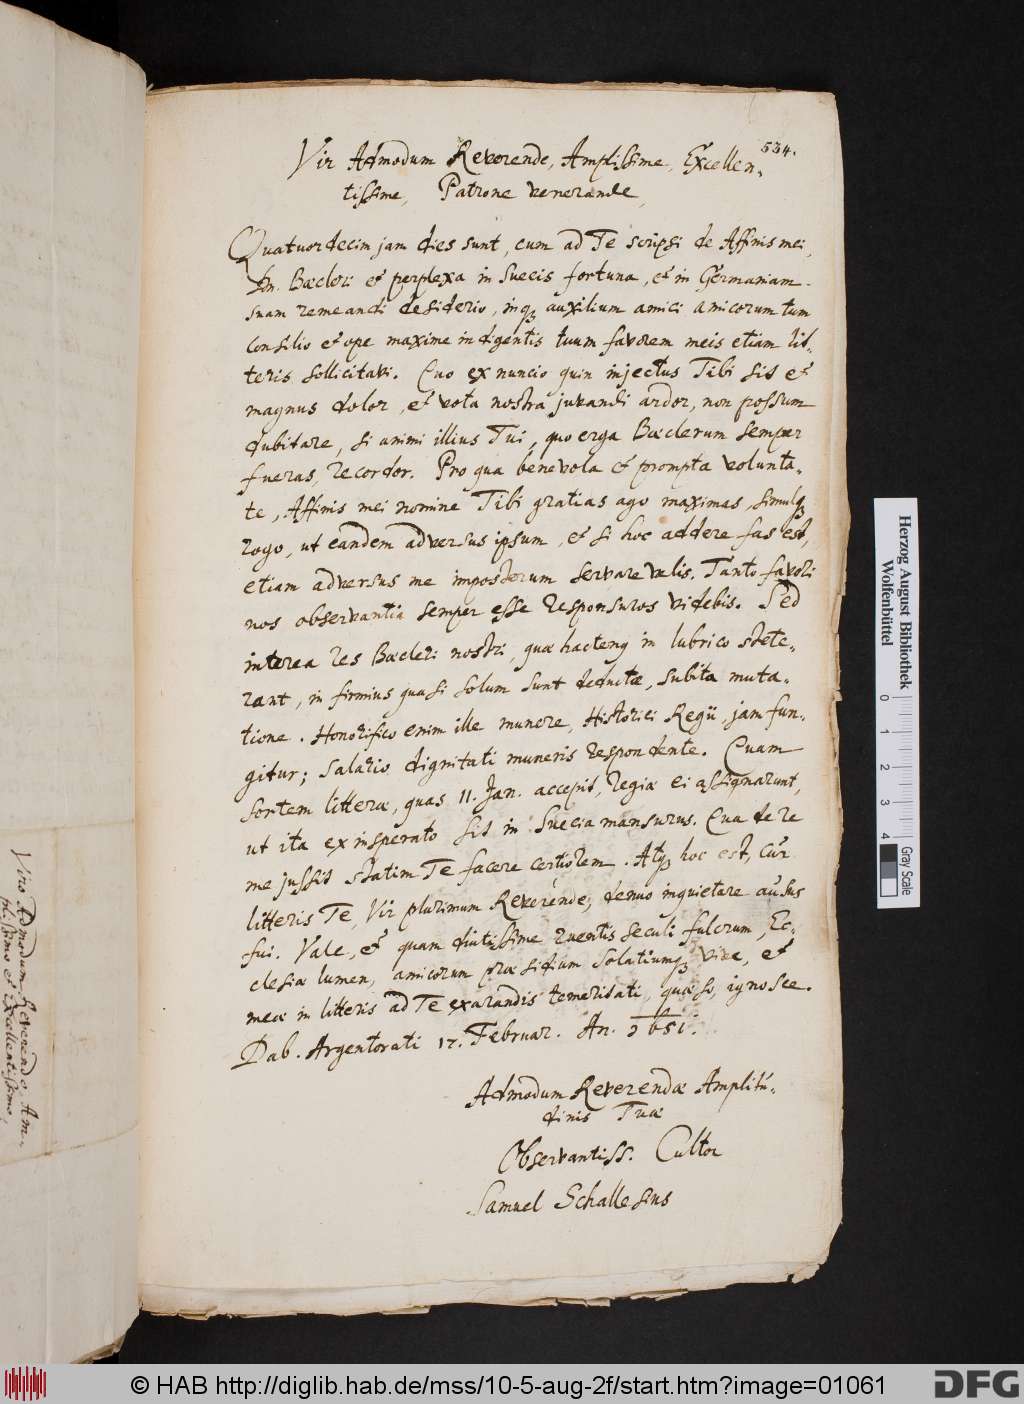 534.
Vir Admodum Reverende, Amplissime, Excellen-
tissime, Patrone venerande,
Quatuordecim jam dies sunt, cum ad Te scripsi de Affinis mei,
Dn. Bœcleri et perplexa in Suecis fortuna, et in Germaniam
suam remeandi desiderio, inq; auxilium amici amicorum tum
consilio et ope maxime indigentis tuum favorem meis etiam lit-
teris sollicitavi. Quo ex nuncio quin injectus Tibi sit et
magnus dolor, et vota nostra juvandi ardor, non possum
dubitare, si animi illius Tui, quo erga Bœclerum semper
fueras, recordor. Pro qua benevola et prompta volunta-
te, Affinis mei nomine Tibi gratias ago maximas, simulq;
rogo, ut eandem adversus ipsum, et si hoc addere fas est,
etiam adversus me imposterum servare velis. Tanto favori
nos observantia semper esse responsuros videbis. Sed
interea res Bœcleri nostri, quæ hactenq in lubrico stete-
rant, in firmius quasi solum sunt deductæ, subita muta-
tione. Honorifico enim ille munere, Historici Regii, jam fun-
gitur; salario dignitati muneris respondente. Quam
sortem litteræ, quas 11. Jan. accepit, Regiæ ei assignarunt,
ut ita ex insperato sit in Suecia mansurus. Qua de re
me jussit statim Te facere certiorem. Atq; hoc est, cur
litteris Te, Vir plurimum Reverende, denuo inquietare ausus
fui. Vale, et quam diutissime ruentis seculi fulcrum, Ec-
clesiæ lumen, amicorum præsidium solatiumq; vive, et
meæ in litteris ad Te exarandis temeritati, quæso, ignosce.
Dab. Argentorati 17. Februar. An. 1651.
Admodum Reverendæ Amplitu-
dinis Tuæ
Observantiss. Cultor
Samuel Schallesius
Viro Admodum Reverendo, Am-
plissimo et Excellentissimo,
Herzog August Bibliothek
Wolfenbüttel
0
1
2
3
4
Gray Scale
© HAB http://diglib.hab.de/mss/10-5-aug-2f/start.htm?image=01061
DFG